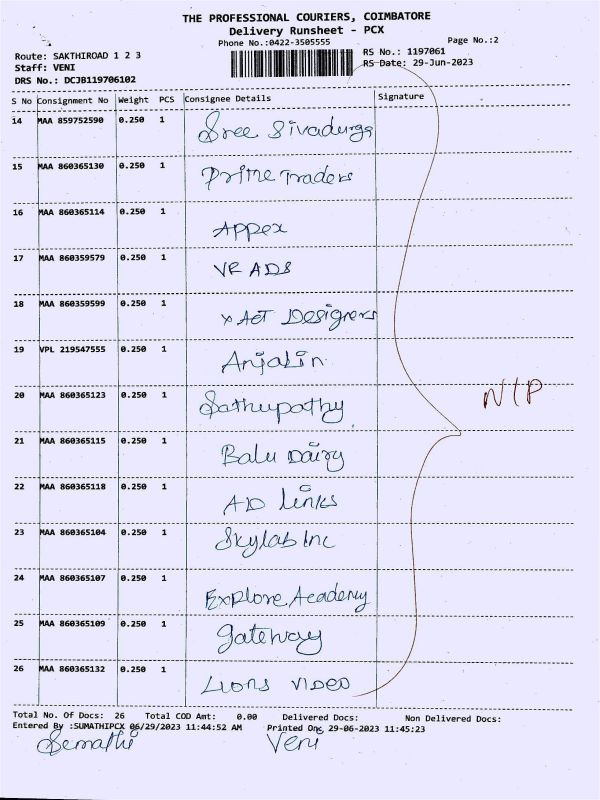 THE PROFESSIONAL COURIERS, COIMBATORE
Delivery Runsheet - PCX
Phone No.:0422-3505555
Page No.:2
Route: SAKTHIROAD 1 2 3
RS No.: 1197061
Staff: VENI
RS Date: 29-Jun-2023
DRS No.: DCJB119706102
S No Consignment No Weight PCS Consignee Details Signature
14 MAA 859752590 0.250 1 Sree Sivadurga
15 MAA 860365130 0.250 1 Prime Traders
16 MAA 860365114 0.250 1 Appex
17 MAA 860359579 0.250 1 VR ADS
18 MAA 860359599 0.250 1 XAct Designers
19 VPL 219547555 0.250 1 Anjalin
20 MAA 860365123 0.250 1 Sathupathy
N/P
21 MAA 860365115 0.250 1 Balu Dairy
22 MAA 860365118 0.250 1 AD links
23 MAA 860365104 0.250 1 Skylab Inc
24 MAA 860365107 0.250 1 Explore Academy
25 MAA 860365109 0.250 1 gateway
26 MAA 860365132 0.250 1 Lions VIDEO
Total No. Of Docs: 26 Total COD Amt: 0.00 Delivered Docs: Non Delivered Docs:
Entered By :SUMATHIPCX 06/29/2023 11:44:52 AM Printed On: 29-06-2023 11:45:23
Veni